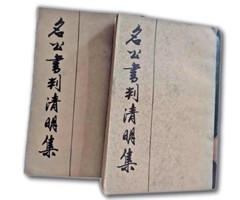 名公書判清明集
名公書判清明集